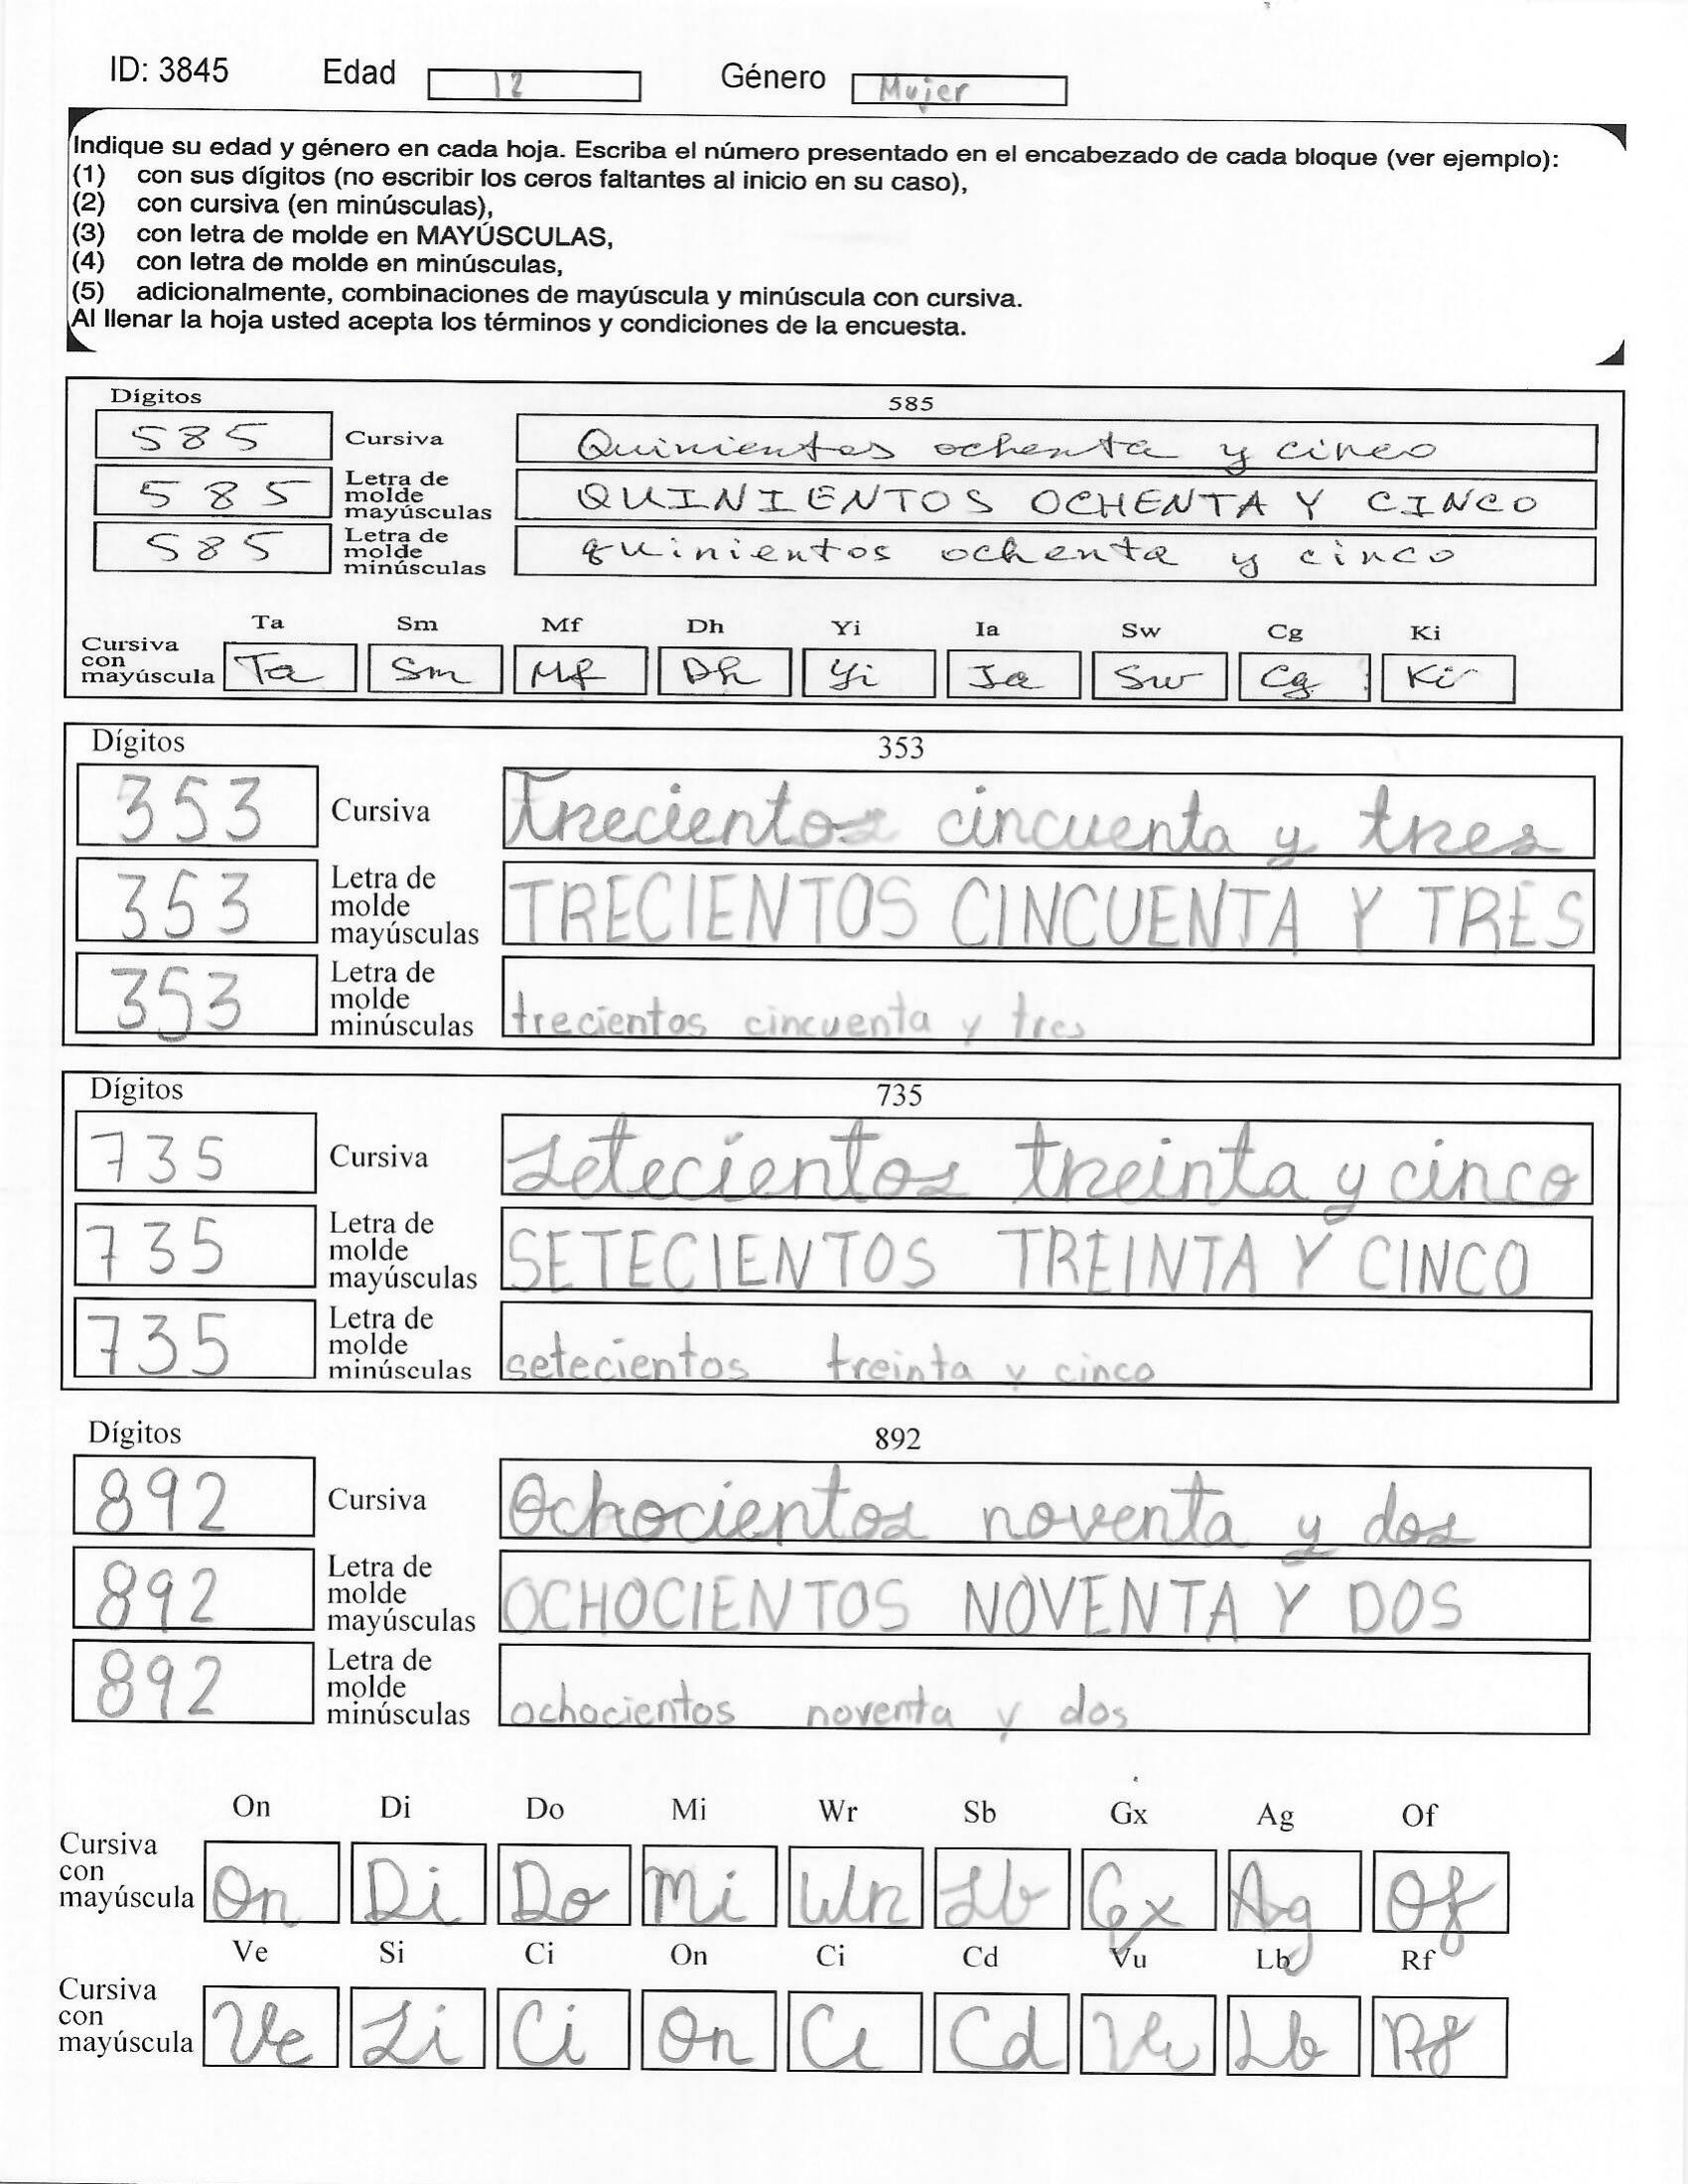 ID: 3845 Edad 12 Género Mujer
Indique su edad y género en cada hoja. Escriba el número presentado en el encabezado de cada bloque (ver ejemplo):
(1) con sus dígitos (no escribir los ceros faltantes al inicio en su caso),
(2) con cursiva (en minúsculas),
(3) con letra de molde en MAYÚSCULAS,
(4) con letra de molde en minúsculas,
(5) adicionalmente, combinaciones de mayúscula y minúscula con cursiva.
Al llenar la hoja usted acepta los términos y condiciones de la encuesta.
Dígitos 585
585 Cursiva Quinientos ochenta y cinco
585 Letra de molde mayúsculas QUINIENTOS OCHENTA Y CINCO
585 Letra de molde minúsculas quinientos ochenta y cinco
Ta Sm Mf Dh Yi Ia Sw Cg Ki
Cursiva con mayúscula Ta Sm Mf Dh Yi Ia Sw Cg Ki
Dígitos 353
353 Cursiva Trecientos cincuenta y tres
353 Letra de molde mayúsculas TRECIENTOS CINCUENTA Y TRES
353 Letra de molde minúsculas trecientos cincuenta y tres
Dígitos 735
735 Cursiva setecientos treinta y cinco
735 Letra de molde mayúsculas SETECIENTOS TREINTA Y CINCO
735 Letra de molde minúsculas setecientos treinta y cinco
Dígitos 892
892 Cursiva Ochocientos noventa y dos
892 Letra de molde mayúsculas OCHOCIENTOS NOVENTA Y DOS
892 Letra de molde minúsculas ochocientos noventa y dos
On Di Do Mi Wr Sb Gx Ag Of
Cursiva con mayúscula On Di Do Mi Wr Sb Gx Ag Of
Ve Si Ci On Ci Cd Vu Lb Rf
Cursiva con mayúscula Ve Si Ci On Ci Cd Vu Lb Rf